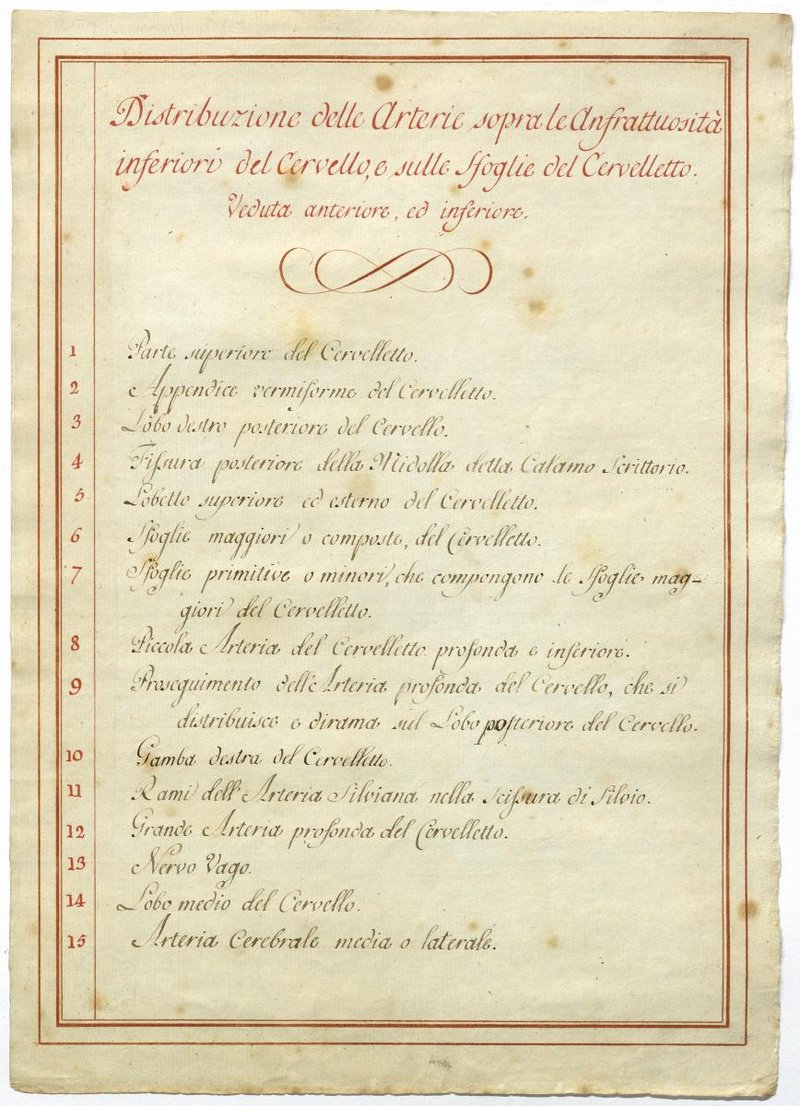 Distribuzione delle Arterie sopra le Anfrattuosità
inferiori del Cervello, e sulle Sfoglie del Cervelletto.
Veduta anteriore, ed inferiore.
1 Parte superiore del Cervelletto.
2 Appendice vermiforme del Cervelletto.
3 Lobo destro posteriore del Cervello.
4 Fissura posteriore della Midolla detta Calamo Scrittorio.
5 Lobetto superiore ed esterno del Cervelletto.
6 Sfoglie maggiori o composte, del Cervelletto.
7 Sfoglie primitive o minori, che compongono le Sfoglie mag-
giori del Cervelletto.
8 Piccola Arteria del Cervelletto profonda e inferiore.
9 Proseguimento dell'Arteria profonda del Cervello, che si
distribuisce e dirama sul Lobo posteriore del Cervello.
10 Gamba destra del Cervelletto.
11 Rami dell'Arteria Silviana nella Scissura di Silvio.
12 Grande Arteria profonda del Cervelletto.
13 Nervo Vago.
14 Lobo medio del Cervello.
15 Arteria Cerebrale media o laterale.